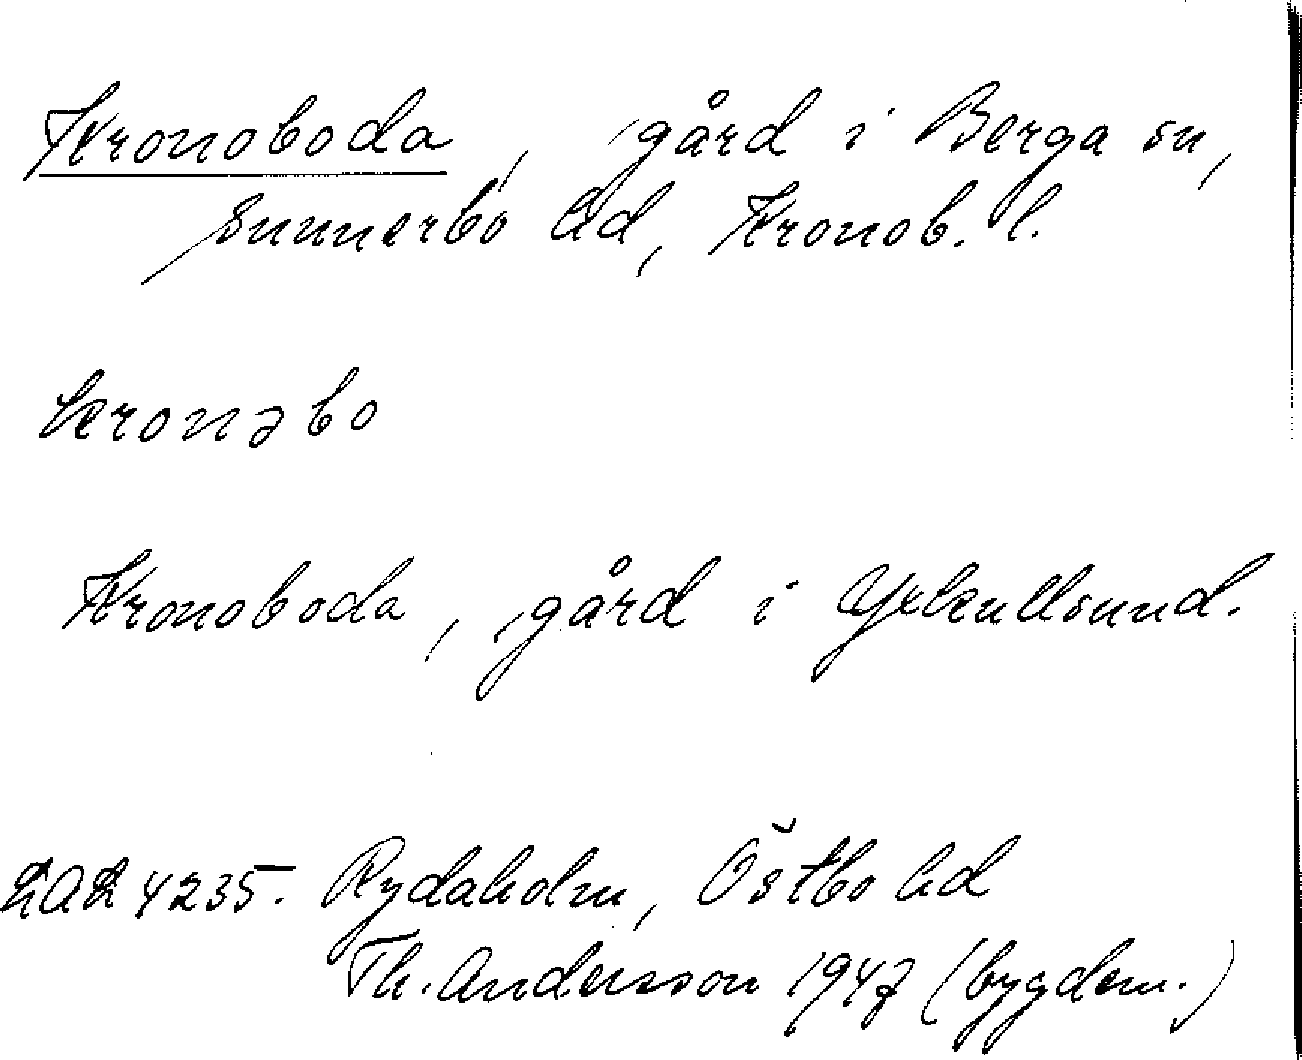 Kronoboda, gård i Berga sn,
Sunnerbo hd, Kronob. l.
kronəbo
Kronoboda, gård i Yxkullsund.
LAL 4235. Rydaholm, Östbo hd
Th. Andersson 1947 (bygdem.)